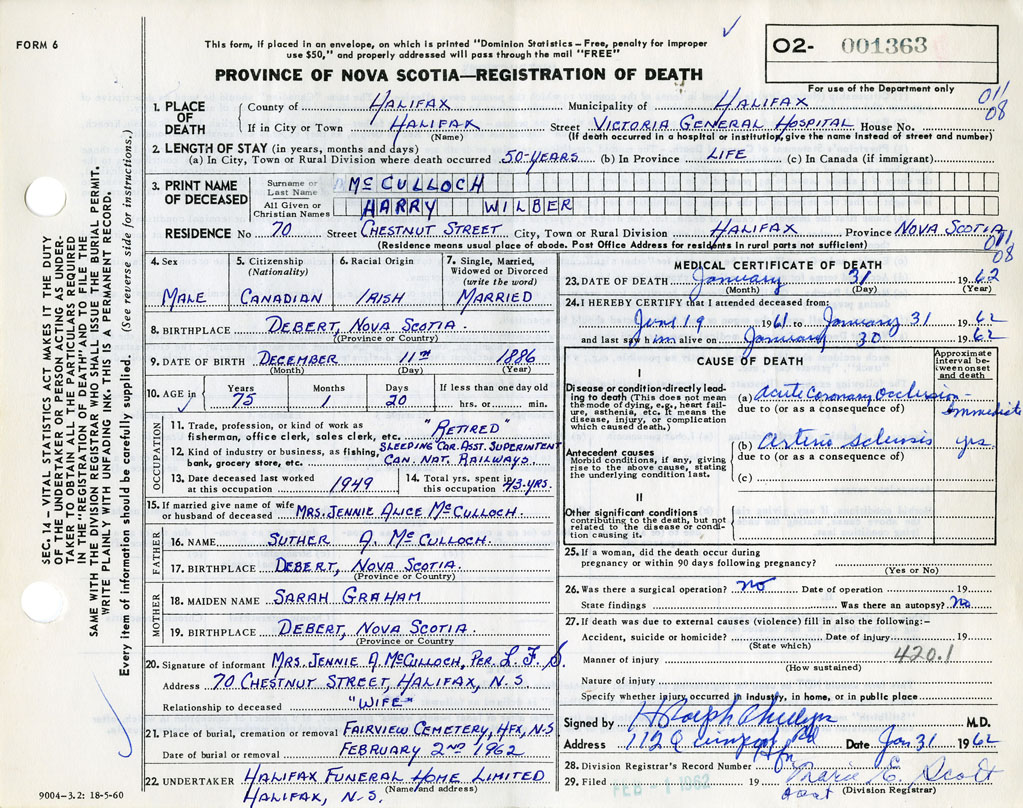 FORM 6
This form, if placed in an envelope, on which is printed "Dominion Statistics – Free, penalty for improper
use $50," and properly addressed will pass through the mail "FREE"
PROVINCE OF NOVA SCOTIA—REGISTRATION OF DEATH
O2- 001363
For use of the Department only
011
08
SEC. 14 – VITAL STATISTICS ACT MAKES IT THE DUTY
OF THE UNDERTAKER OR PERSON ACTING AS UNDER-
TAKER TO OBTAIN ALL THE PARTICULARS REQUIRED
IN THE "REGISTRATION OF DEATH" AND TO FILE THE
SAME WITH THE DIVISION REGISTRAR WHO SHALL ISSUE THE BURIAL PERMIT.
WRITE PLAINLY WITH UNFADING INK. THIS IS A PERMANENT RECORD.
Every item of information should be carefully supplied. (See reverse side for instructions.)
1. PLACE OF DEATH
County of HALIFAX Municipality of HALIFAX
If in City or Town HALIFAX Street VICTORIA GENERAL HOSPITAL House No.
(Name) (If death occurred in a hospital or institution, give the name instead of street and number)
2. LENGTH OF STAY (in years, months and days)
(a) In City, Town or Rural Division where death occurred 50-YEARS (b) In Province LIFE (c) In Canada (if immigrant)
3. PRINT NAME OF DECEASED
Surname or Last Name McCULLOCH
All Given or Christian Names HARRY WILBER
RESIDENCE No 70 Street CHESTNUT STREET City, Town or Rural Division HALIFAX Province NOVA SCOTIA
(Residence means usual place of abode. Post Office Address for residents in rural parts not sufficient)
011
08
4. Sex MALE
5. Citizenship (Nationality) CANADIAN
6. Racial Origin IRISH
7. Single, Married, Widowed or Divorced (write the word) MARRIED
8. BIRTHPLACE DEBERT, NOVA SCOTIA.
(Province or Country)
9. DATE OF BIRTH DECEMBER 11TH 1886
(Month) (Day) (Year)
10. AGE in Years 75 Months 1 Days 20 If less than one day old hrs. or min.
OCCUPATION
11. Trade, profession, or kind of work as
fisherman, office clerk, sales clerk, etc. "RETIRED"
12. Kind of industry or business, as fishing, SLEEPING CAR. ASST. SUPERINTENT
bank, grocery store, etc. CAN. NAT. RAILWAYS.
13. Date deceased last worked at this occupation 1949
14. Total yrs. spent in this occupation 43-YRS.
15. If married give name of wife or husband of deceased MRS. JENNIE ALICE McCULLOCH.
FATHER
16. NAME SUTHER A. McCULLOCH.
17. BIRTHPLACE DEBERT, NOVA SCOTIA.
(Province or Country)
MOTHER
18. MAIDEN NAME SARAH GRAHAM
19. BIRTHPLACE DEBERT, NOVA SCOTIA
(Province or Country)
20. Signature of informant MRS. JENNIE A. McCULLOCH, PER. L. F. S.
Address 70 CHESTNUT STREET, HALIFAX, N.S.
Relationship to deceased "WIFE"
21. Place of burial, cremation or removal FAIRVIEW CEMETERY, HFX, N.S
Date of burial or removal FEBRUARY 2ND 1962
22. UNDERTAKER HALIFAX FUNERAL HOME LIMITED
(Name and address)
HALIFAX, N.S.
9004-3.2: 18-5-60
MEDICAL CERTIFICATE OF DEATH
23. DATE OF DEATH January 31 1962
(Month) (Day) (Year)
24. I HEREBY CERTIFY that I attended deceased from:
June 19 1961 to January 31 1962
and last saw him alive on January 30 1962
CAUSE OF DEATH
Approximate interval between onset and death
I
Disease or condition directly leading to death (This does not mean the mode of dying, e.g., heart failure, asthenia, etc. It means the disease, injury, or complication which caused death.)
(a) Acute Coronary Occlusion - Immediate
due to (or as a consequence of)
Antecedent causes
Morbid conditions, if any, giving rise to the above cause, stating the underlying condition last.
(b) Arterio sclerosis yrs
due to (or as a consequence of)
(c)
II
Other significant conditions
contributing to the death, but not related to the disease or condition causing it.
25. If a woman, did the death occur during
pregnancy or within 90 days following pregnancy?
(Yes or No)
26. Was there a surgical operation? no Date of operation 19
State findings Was there an autopsy? No
27. If death was due to external causes (violence) fill in also the following:–
Accident, suicide or homicide? Date of injury 19
(State which)
Manner of injury 420.1
(How sustained)
Nature of injury
Specify whether injury occurred in industry, in home, or in public place
Signed by H Ralph M.D.
Address 112 Rd Date Jan 31 1962
Hfx
28. Division Registrar's Record Number
29. Filed FEB - 1 1962 19 Marie E. Scott
(Division Registrar)